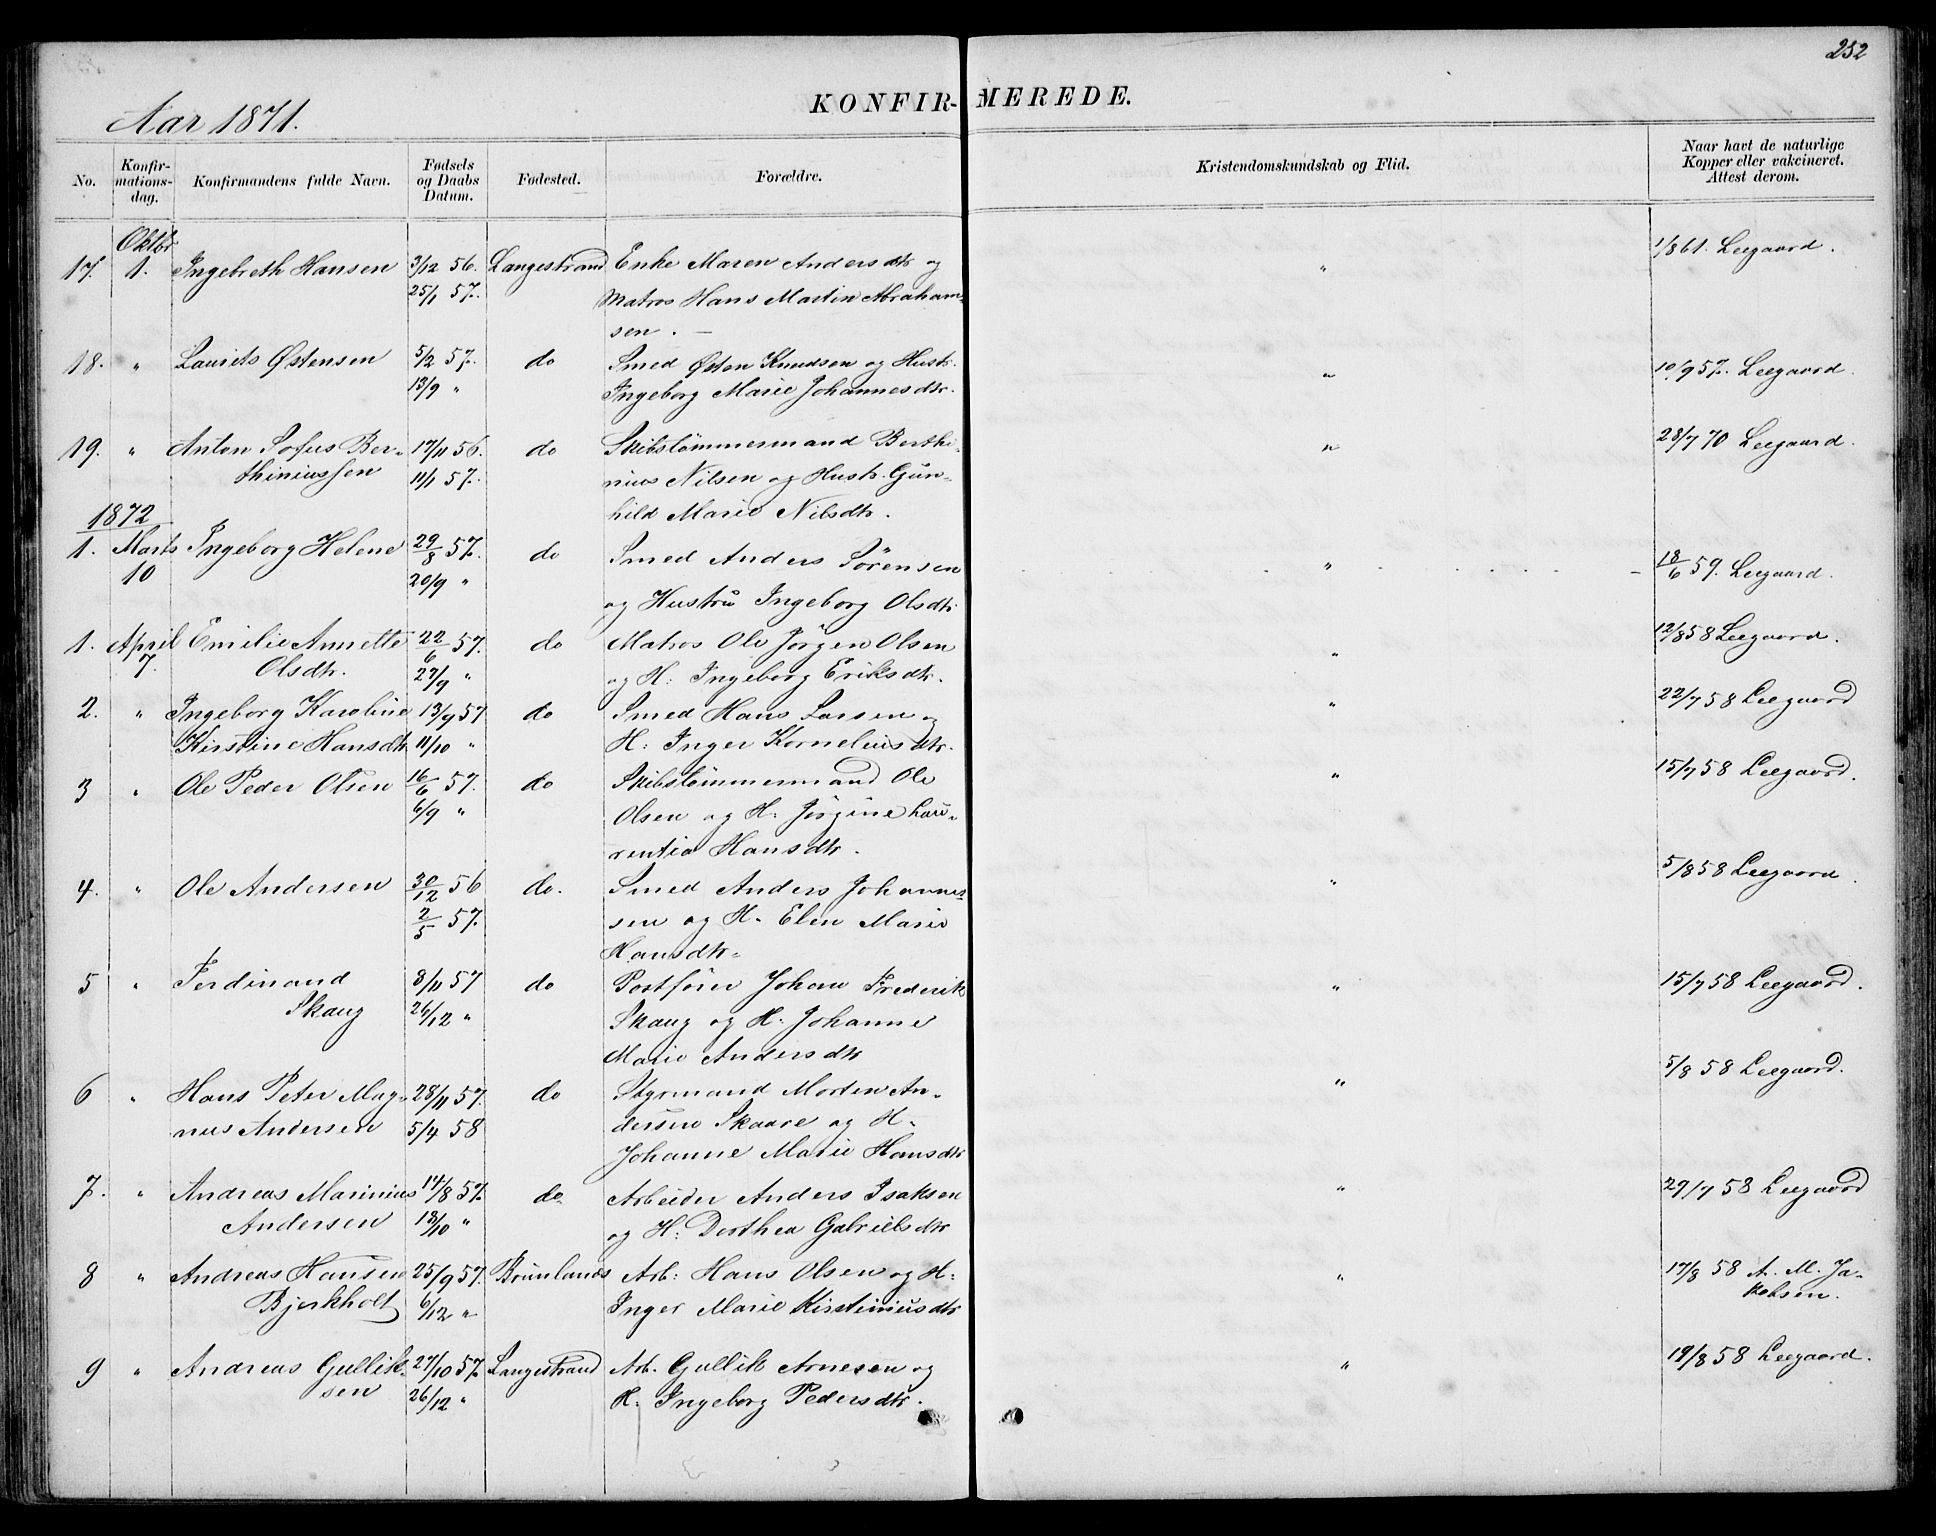 252
Aar 1871.
KONFIR-MEREDE.
No.
Konfir-
mations-
dag.
Konfirmandens fulde Navn.
Fødsels
og Daabs
Datum.
Fødested.
Forældre.
Kristendomskundskab og Flid.
Naar havt de naturlige
Kopper eller vakcineret.
Attest derom.
Oktbr
17. 1. Ingebreth Hansen 3/12 56. Langestrand Enke Maren Andersdtr og " 1/8 61. Leegaard.
25/1 57. Matros Hans Martin Abraham-
sen. —
18. " Laurits Østensen 5/2 57. do Smed Østen Knudsen og Hustr. " 10/9 57. Leegaard.
13/9 " Ingeborg Marie Johannesdtr.
19. " Anton Sofus Ber- 17/11 56. do Skibstömmermand Berthi- " 28/7 70 Leegaard.
thiniussen 11/1 57. nius Nilsen og Hustr. Gun-
hild Marie Nilsdtr.
1872
1. Marts Ingeborg Helene 29/8 57. do Smed Anders Sörensen " 18/6 59. Leegaard.
10 20/9 " og Hustru Ingeborg Olsdtr
1. April Emilie Annette 22/6 57. do Matros Ole Jörgen Olsen " 12/8 58 Leegaard.
7. Olsdtr. 27/9 " og H. Ingeborg Eriksdtr.
2. " Ingeborg Karoline 13/9 57 do Smed Hans Larsen og " 22/7 58 Leegaard
Kirstine Hansdtr 11/10 " H. Inger Korneliusdtr.
3 " Ole Peder Olsen 16/6 57. do Skibstömmermand Ole " 15/7 58 Leegaard.
6/9 " Olsen og H. Jörgine Lau-
rentia Hansdtr.
4. " Ole Andersen 30/12 56 do. Smed Anders Johannes- " 5/8 58 Leegaard.
2/5 57. sen og H. Elen Marie
Hansdtr.
5 " Ferdinand 8/11 57 do Postförer Johan Frederik " 15/7 58 Leegaard.
Skaug 26/12 " Skaug og H. Johanne
Marie Andersdtr
6 " Hans Peter Mag- 28/11 57. do Styrmand Morten An- " 5/8 58 Leegaard.
nus Andersen 5/4 58 dersen Skaare og H.
Johanne Marie Hansdtr
7. " Andreas Marinius 14/8 57. do Arbeider Anders Isaksen " 29/7 58 Leegaard
Andersen 18/10 " og H. Dorthea Gabrielsdtr
8 " Andreas Hansen 25/9 57. Brunlanes Arb. Hans Olsen og H. " 17/8 58 A. M. Ja-
Bjerkholt 6/12 " Inger Marie Kirstiniusdtr kobsen.
9 " Andreas Gullik- 27/10 57. Langestrand Arb. Gullik Arnesen og " 19/8 58 Leegaard.
sen 26/12 " H. Ingeborg Pedersdtr.